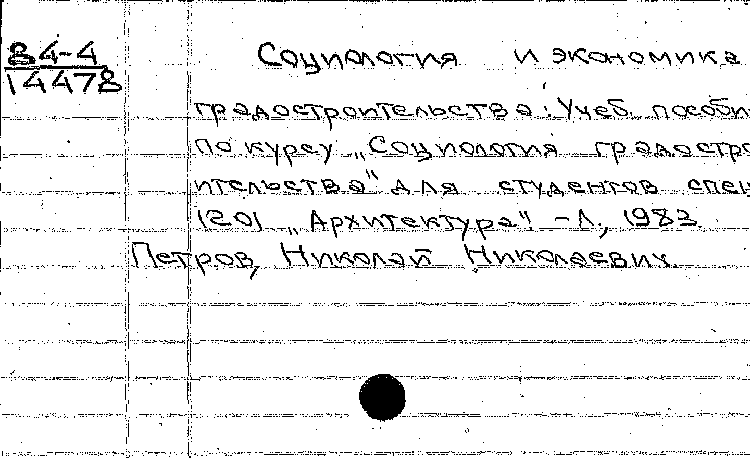 84-4
14478
Социология и экономика
градостроительства: Учеб. пособи
по курсу „Социология градостро
ительства" для студентов спец
1201 „Архитектура". - Л., 1983
Петров, Николай Николаевич